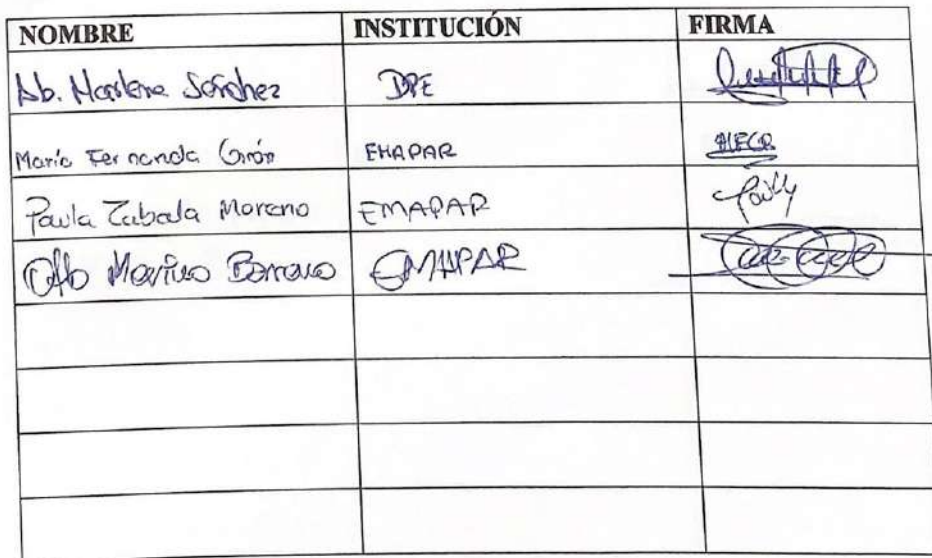 NOMBRE INSTITUCIÓN FIRMA
Ab. Marlene Sánchez DPE
María Fernanda Girón EMAPAR
Paula Zabala Moreno EMAPAR
Otto EMAPAR